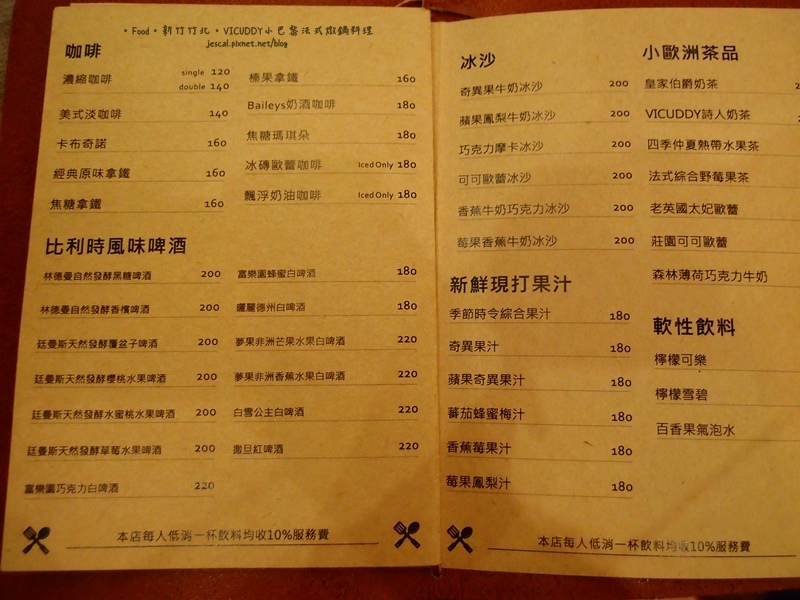 • Food • 新竹竹北 • VICUDDY小巴黎法式燉鍋料理
jescal.pixnet.net/blog
咖啡
濃縮咖啡 single 120
double 140
美式淡咖啡 140
卡布奇諾 160
經典原味拿鐵 160
焦糖拿鐵 160
榛果拿鐵 160
Baileys奶酒咖啡 180
焦糖瑪琪朵 180
冰磚歐蕾咖啡 Iced Only 180
飄浮奶油咖啡 Iced Only 180
比利時風味啤酒
林德曼自然發酵黑糖啤酒 200
林德曼自然發酵香檳啤酒 200
廷曼斯天然發酵覆盆子啤酒 200
廷曼斯天然發酵櫻桃水果啤酒 200
廷曼斯天然發酵水蜜桃水果啤酒 200
廷曼斯天然發酵草莓水果啤酒 200
富樂園巧克力白啤酒 220
富樂園蜂蜜白啤酒 180
曬麗德州白啤酒 180
夢果非洲芒果水果白啤酒 220
夢果非洲香蕉水果白啤酒 220
白雪公主白啤酒 220
撒旦紅啤酒 220
本店每人低消一杯飲料均收10%服務費
冰沙
奇異果牛奶冰沙 200
蘋果鳳梨牛奶冰沙 200
巧克力摩卡冰沙 200
可可歐蕾冰沙 200
香蕉牛奶巧克力冰沙 200
莓果香蕉牛奶冰沙 200
新鮮現打果汁
季節時令綜合果汁 180
奇異果汁 180
蘋果奇異果汁 180
蕃茄蜂蜜梅汁 180
香蕉莓果汁 180
莓果鳳梨汁 180
小歐洲茶品
皇家伯爵奶茶
VICUDDY詩人奶茶
四季仲夏熱帶水果茶
法式綜合野莓果茶
老英國太妃歐蕾
莊園可可歐蕾
森林薄荷巧克力牛奶
軟性飲料
檸檬可樂
檸檬雪碧
百香果氣泡水
本店每人低消一杯飲料均收10%服務費